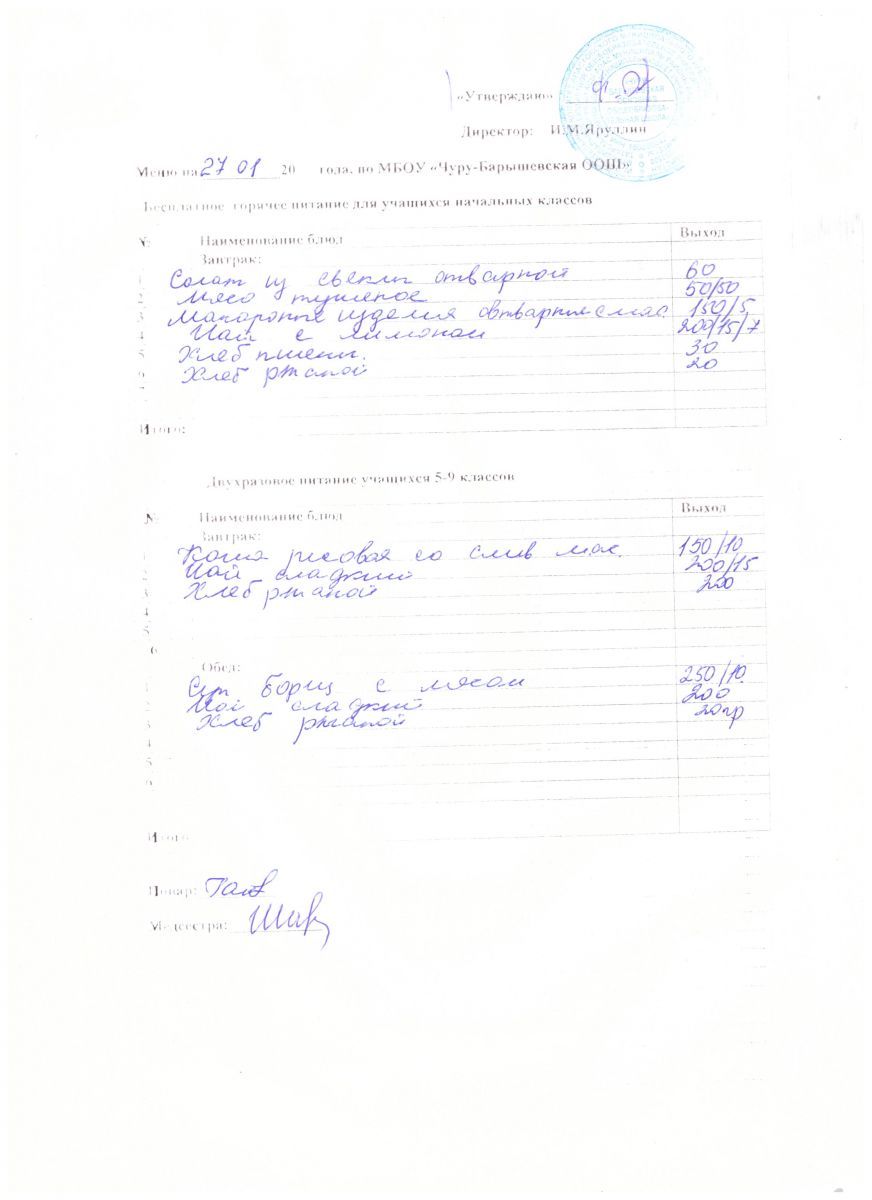 «Утверждаю»
Директор: И.М.Яруллин
Меню на 27 01 20 года, по МБОУ «Чуру-Барышевская ООШ»
Бесплатное горячее питание для учащихся начальных классов
№ Наименование блюд Выход
Завтрак:
1 Салат из свеклы отварной 60
2 Мясо тушеное 50/50
3 Макаронные изделия отварные с мас. 150/5
4 Чай с лимоном 200/15/7
5 Хлеб пшени. 30
6 Хлеб ржаной 20
7
Итого:
Двухразовое питание учащихся 5-9 классов
№ Наименование блюд Выход
Завтрак:
1 Каша рисовая со слив мас. 150/10
2 Чай сладкий 200/15
3 Хлеб ржаной 200
4
5
6
Обед:
1 Суп Борщ с мясом 250/10
2 Чай сладкий 200
3 Хлеб ржаной 20гр
4
5
6
Итого
Повар:
Медсестра: